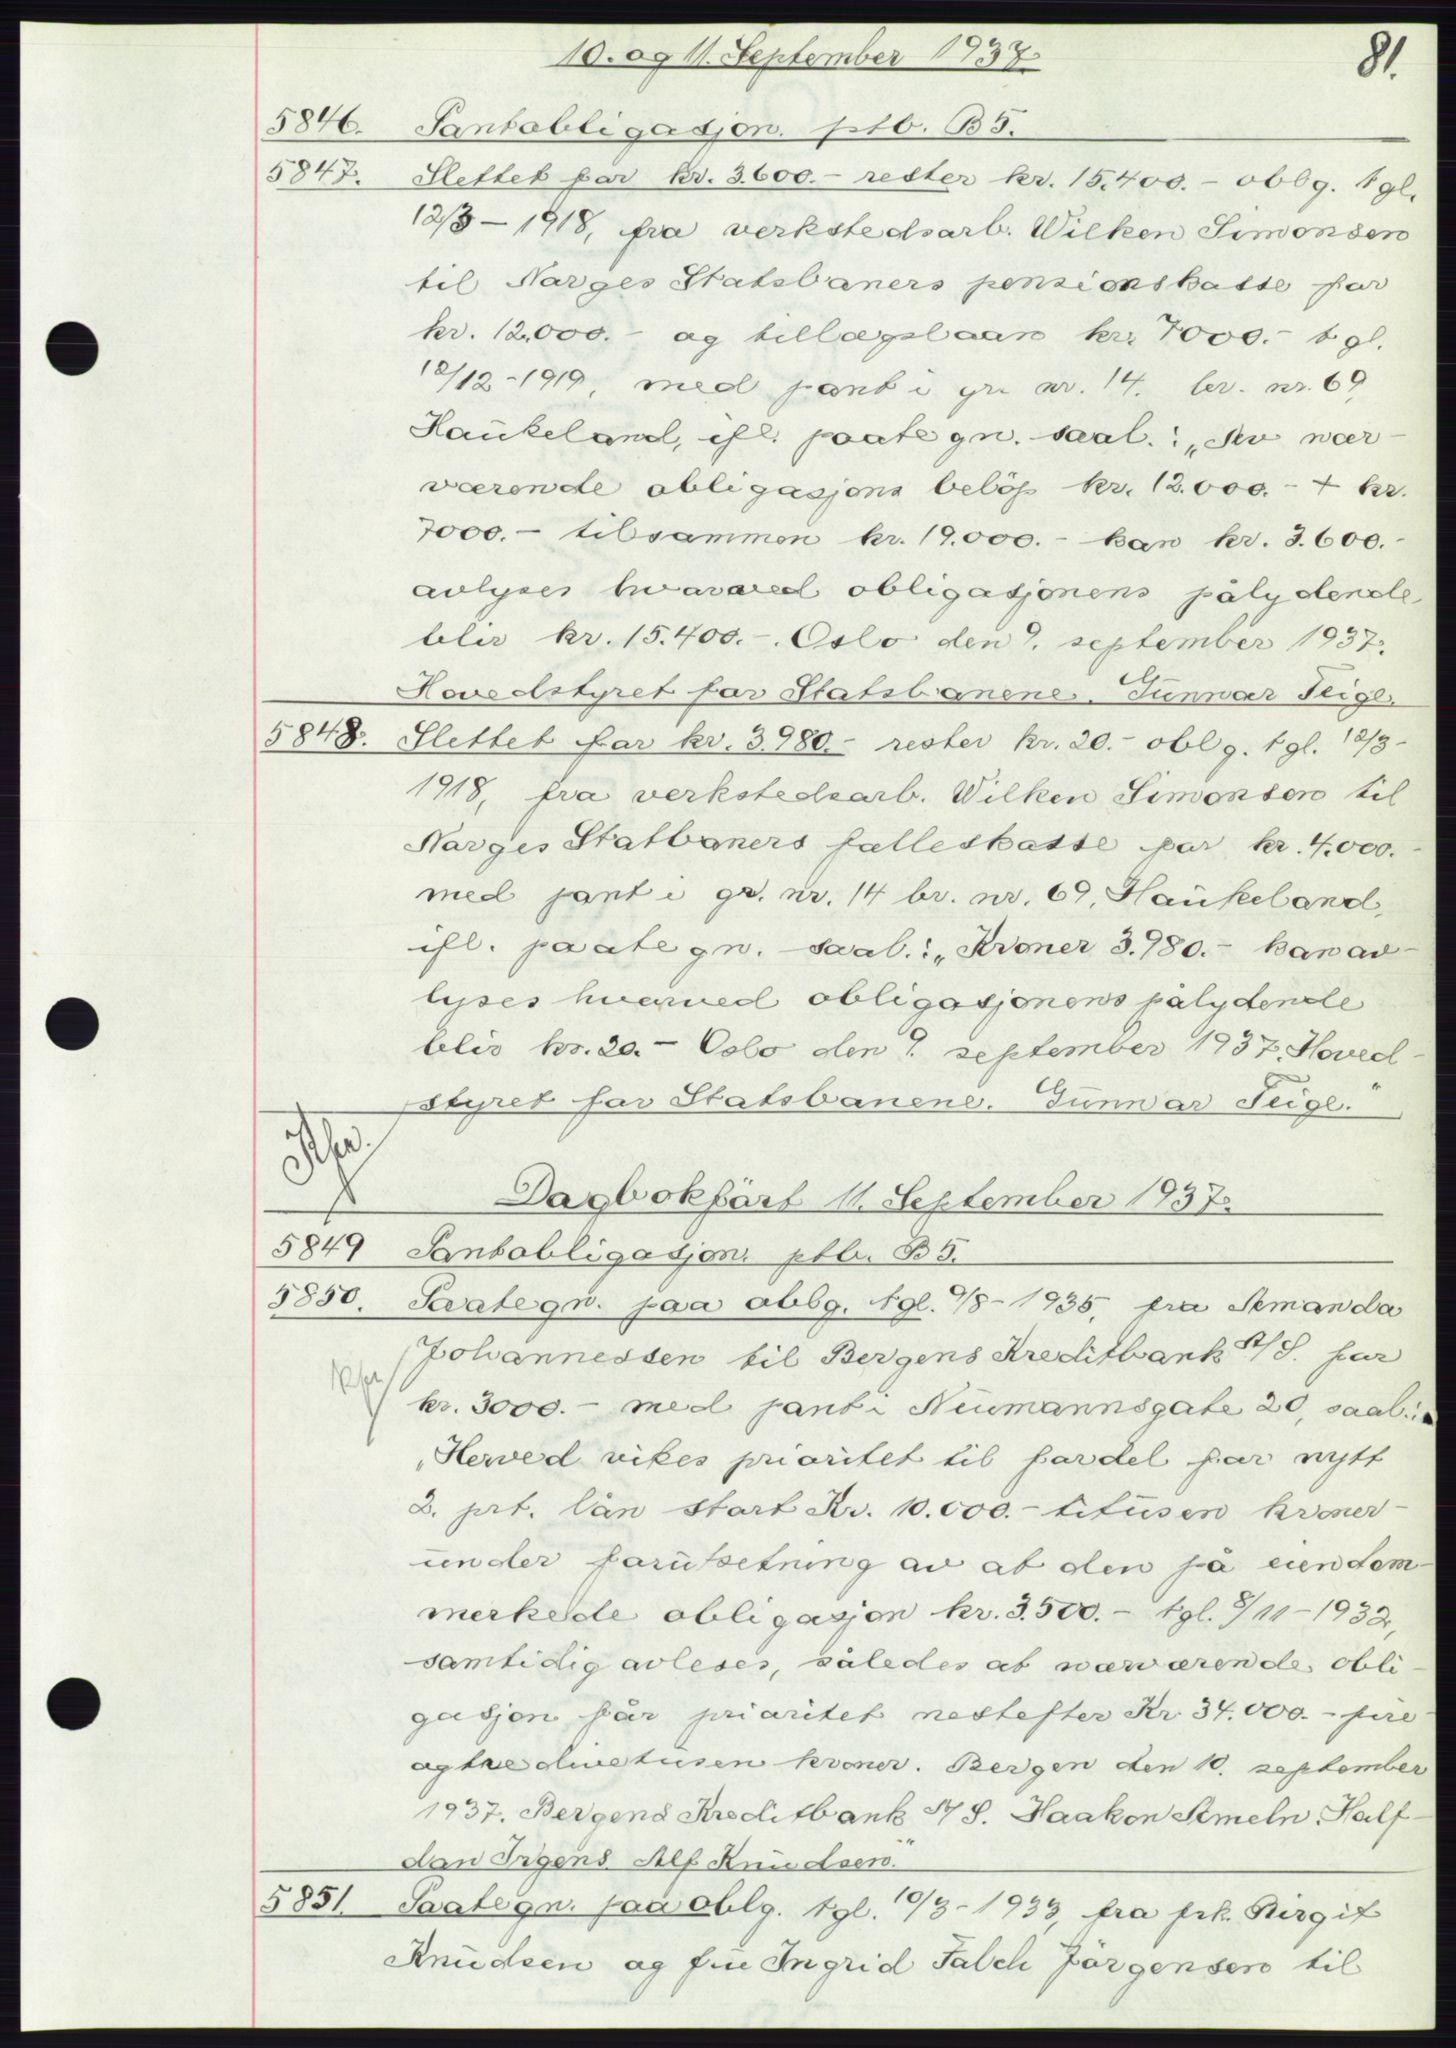 10. og 11. September 1937.
81.
5846. Pantobligasjon. ptb. B5.
5847. Slettet for kr. 3.600.- rester kr. 15.400.- oblg. tgl.
12/3 - 1918, fra verkstedsarb. Wilken Simonsen
til Norges Statsbaners pensionskasse for
kr. 12.000.- og tillægslaan kr. 7000.- tgl.
12-1919, med pant i gr. nr. 14. br. nr. 69
Haukeland, ifl. paategn. saal.: „Av nær-
værende obligasjons beløp kr. 12.000.- + kr.
7000.- tilsammen kr. 19.000.- kan kr. 3.600.-
avlyses hvorved obligasjonens pålydende
blir kr. 15.400.-. Oslo den 9. september 1937.
Hovedstyret for Statsbanene. Gunnar Teige.
5848. Slettet for kr. 3.980.- rester kr. 20.- oblg. tgl. 12/3-
1918, fra verkstedsarb. Wilken Simonsen til
Norges Statbaners felleskasse for kr. 4.000.-
med pant i gr. nr. 14 br. nr. 69, Haukeland,
ifl. paategn. saal.: „Kroner 3.980.- kan av-
lyses hvorved obligasjonens pålydende
blir kr. 20.- Oslo den 9. september 1937. Hoved-
styret for Statsbanene. Gunnar Teige."
Dagbokført 11. September 1937.
5849 Pantobligasjon. ptb. B5.
5850. Paategn. paa oblg. tgl. 9/8-1935, fra Amanda
Johannessen til Bergens Kreditbank A/S. for
kr. 3000.- med pant i Neumannsgate 20, saal.:
„Herved vikes prioritet til fordel for nytt
2. prt. lån stort Kr. 10.000.- titusen kroner-
under forutsetning av at den på eiendom-
merkede obligasjon kr. 3.500.- tgl. 8/11-1932,
samtidig avleses, således at nærværende obli-
gasjon får prioritet nestefter Kr 34.000.- fire-
ogtredivetusen kroner. Bergen den 10. september
1937. Bergens Kreditbank A/S. Haakon Ameln. Half-
dan Irgens. Alf Knudsen."
5851. Paategn. paa oblg. tgl. 10/3-1933, fra frk. Birgit
Knudsen og fru Ingrid Falch Jørgensen til